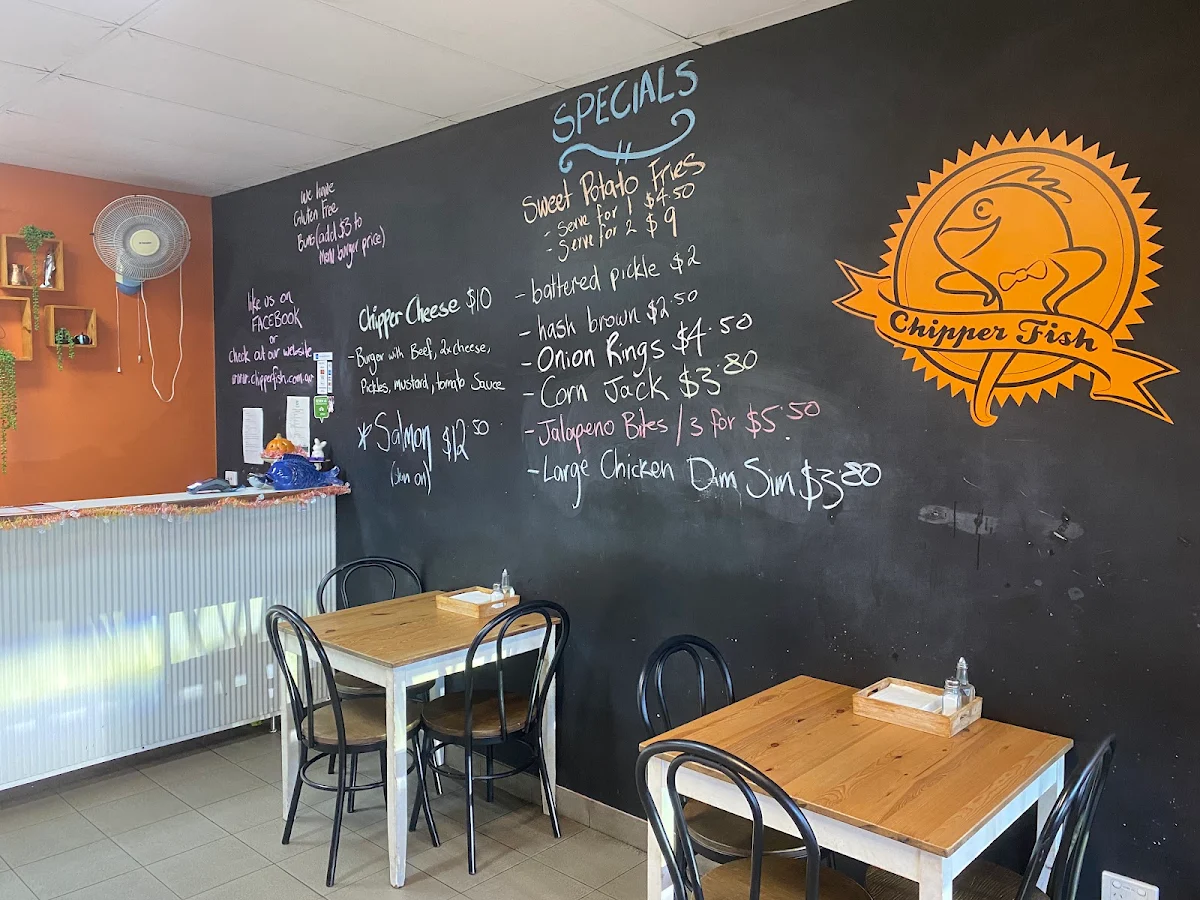 SPECIALS
Sweet Potato Fries
- Serve for 1 $4.50
- Serve for 2 $9
- battered pickle $2
- hash brown $2.50
- Onion Rings $4.50
- Corn Jack $3.80
- Jalapeno Bites / 3 for $5.50
- Large Chicken Dim Sim $3.80
We have
Gluten Free
Buns (add $3 to
Menu burger price)
like us on
FACEBOOK
or
check out our website
www.chipperfish.com.au
Chipper Cheese $10
- Burger with Beef, 2x cheese,
Pickles, mustard, tomato Sauce
* Salmon $12.50
(skin on)
Chipper Fish